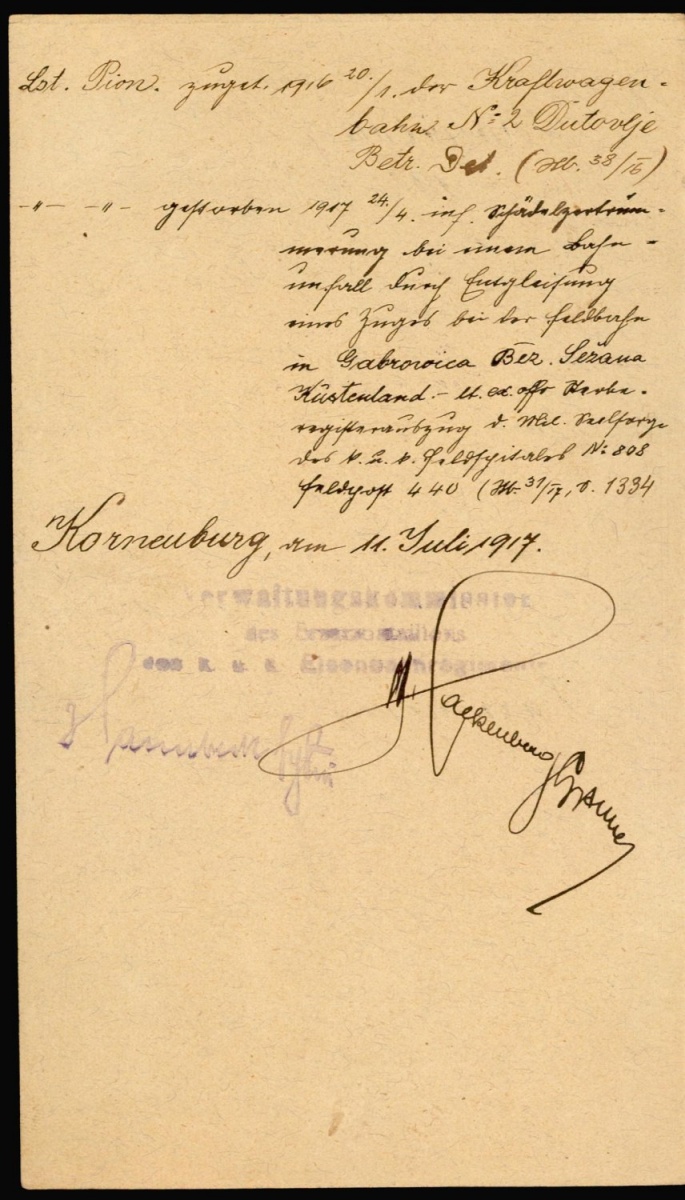 Lst. Pion. zuget. 1916 20./1. der Kraftwagen-
bahn No 2 Dutovlje
Betr. Det. (Hb. 38/16)
-"- -"- gestorben 1917 24./4. inf. Schädelzertrüm-
merung bei einem Bahn-
unfall durch Entgleisung
eines Zuges bei der Feldbahn
in Gabrowica Bez. Sežana
Küstenland. - lt. ex. offo Sterbe-
registerauszug d. Mil. Seelsorge
des k. u. k. Feldspitales No 808
Feldpost 440 (Hb. 31/17, S. 1334
Korneuburg, am 11. Juli 1917.
Verwaltungskommission
des Ersatzbataillons
des k. u. k. Eisenbahnregiments